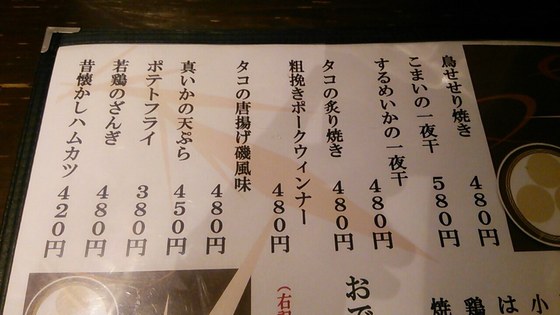 鳥せせり焼き 480円
こまいの一夜干 580円
するめいかの一夜干 480円
タコの炙り焼き 480円
粗挽きポークウィンナー 480円
タコの唐揚げ磯風味 480円
真いかの天ぷら 450円
ポテトフライ 380円
若鶏のざんぎ 480円
昔懐かしハムカツ 420円
小
は
鶏
焼
おで
（右記